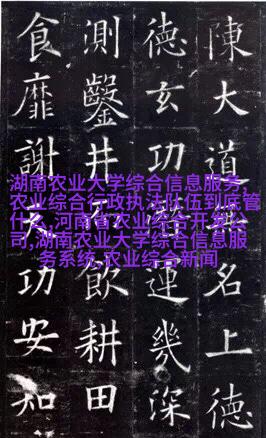 陳大道名上德
德玄功運幾深
測鑿井飲耕田
食靡謝功安知
湖南农业大学综合信息服务,
农业综合行政执法队伍到底管
什么,河南省农业综合开发公
司,湖南农业大学综合信息服
务系统,农业综合新闻